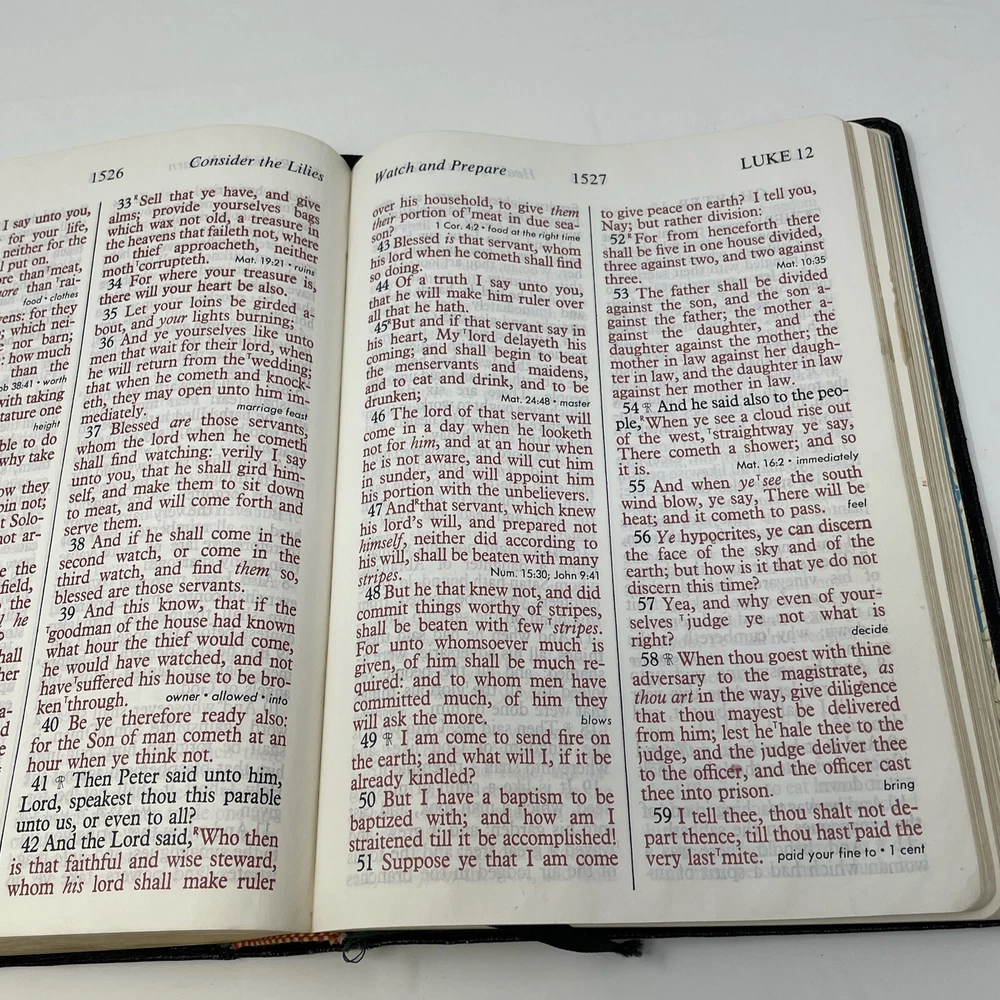 1526
Consider the Lilies
I say unto you,
for your life,
neither for the
ll put on.
ore than ˈmeat,
more than ˈrai-
food • clothes
vens: for they
; which nei-
nor barn;
: how much
than the
ob 38:41 • worth
with taking
tature one
height
ble to do
why take
ow they
pin not;
t Solo-
not ar-
e the
field,
the
he
hall
her
33 ᴿSell that ye have, and give
alms; provide yourselves bags
which wax not old, a treasure in
the heavens that faileth not, where
no thief approacheth, neither
moth ˈcorrupteth. Mat. 19:21 • ruins
34 For where your treasure is,
there will your heart be also.
35 Let your loins be girded a-
bout, and your lights burning;
36 And ye yourselves like unto
men that wait for their lord, when
he will return from the ˈwedding;
that when he cometh and knock-
eth, they may open unto him im-
mediately. marriage feast
37 Blessed are those servants,
whom the lord when he cometh
shall find watching: verily I say
unto you, that he shall gird him-
self, and make them to sit down
to meat, and will come forth and
serve them.
38 And if he shall come in the
second watch, or come in the
third watch, and find them so,
blessed are those servants.
39 And this know, that if the
ˈgoodman of the house had known
what hour the thief would come,
he would have watched, and not
have ˈsuffered his house to be bro-
ken ˈthrough. owner • allowed • into
40 Be ye therefore ready also:
for the Son of man cometh at an
hour when ye think not.
41 ℟ Then Peter said unto him,
Lord, speakest thou this parable
unto us, or even to all?
42 And the Lord said, ᴿWho then
is that faithful and wise steward,
whom his lord shall make ruler
Watch and Prepare
1527
LUKE 12
over his household, to give them
their portion of ˈmeat in due sea-
son? 1 Cor. 4:2 • food at the right time
43 Blessed is that servant, whom
his lord when he cometh shall find
so doing.
44 Of a truth I say unto you,
that he will make him ruler over
all that he hath.
45 ᴿBut and if that servant say in
his heart, My ˈlord delayeth his
coming; and shall begin to beat
the menservants and maidens,
and to eat and drink, and to be
drunken; Mat. 24:48 • master
46 The lord of that servant will
come in a day when he looketh
not for him, and at an hour when
he is not aware, and will cut him
in sunder, and will appoint him
his portion with the unbelievers.
47 And ᴿthat servant, which knew
his lord's will, and prepared not
himself, neither did according to
his will, shall be beaten with many
stripes. Num. 15:30; John 9:41
48 But he that knew not, and did
commit things worthy of stripes,
shall be beaten with few ˈstripes.
For unto whomsoever much is
given, of him shall be much re-
quired: and to whom men have
committed much, of him they
will ask the more. blows
49 ℟ I am come to send fire on
the earth; and what will I, if it be
already kindled?
50 But I have a baptism to be
baptized with; and how am I
straitened till it be accomplished!
51 Suppose ye that I am come
to give peace on earth? I tell you,
Nay; but rather division:
52 ᴿ For from henceforth there
shall be five in one house divided,
three against two, and two against
three. Mat. 10:35
53 The father shall be divided
against the son, and the son a-
gainst the father; the mother a-
gainst the daughter, and the
daughter against the mother; the
mother in law against her daugh-
ter in law, and the daughter in law
against her mother in law.
54 ℟ And he said also to the peo-
ple, ᴿWhen ye see a cloud rise out
of the west, ˈstraightway ye say,
There cometh a shower; and so
it is. Mat. 16:2 • immediately
55 And when ye ˈsee the south
wind blow, ye say, There will be
heat; and it cometh to pass. feel
56 Ye hypocrites, ye can discern
the face of the sky and of the
earth; but how is it that ye do not
discern this time?
57 Yea, and why even of your-
selves ˈjudge ye not what is
right? decide
58 ℟ When thou goest with thine
adversary to the magistrate, as
thou art in the way, give diligence
that thou mayest be delivered
from him; lest he ˈhale thee to the
judge, and the judge deliver thee
to the officer, and the officer cast
thee into prison. bring
59 I tell thee, thou shalt not de-
part thence, till thou hast ˈpaid the
very last ˈmite. paid your fine to • 1 cent